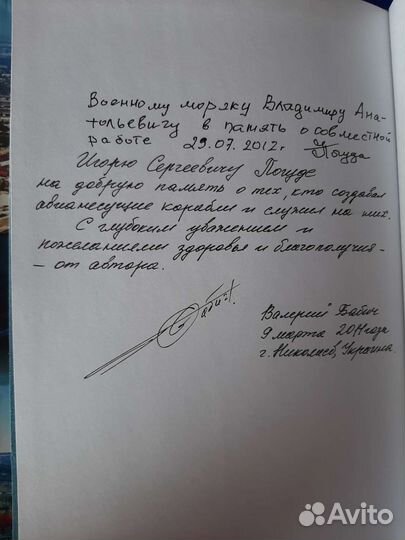 Военному моряку Владимиру Ана-
тольевичу в память о совместной
работе 29.07.2012г.
Игорю Сергеевичу Поуде
на добрую память о тех, кто создавал
авианесущие корабли и служил на них.
С глубоким уважением и
пожеланиями здоровья и благополучия -
- от автора.
Валерий Бабич
9 марта 2011 года
г. Николаев, Украина.
Avito